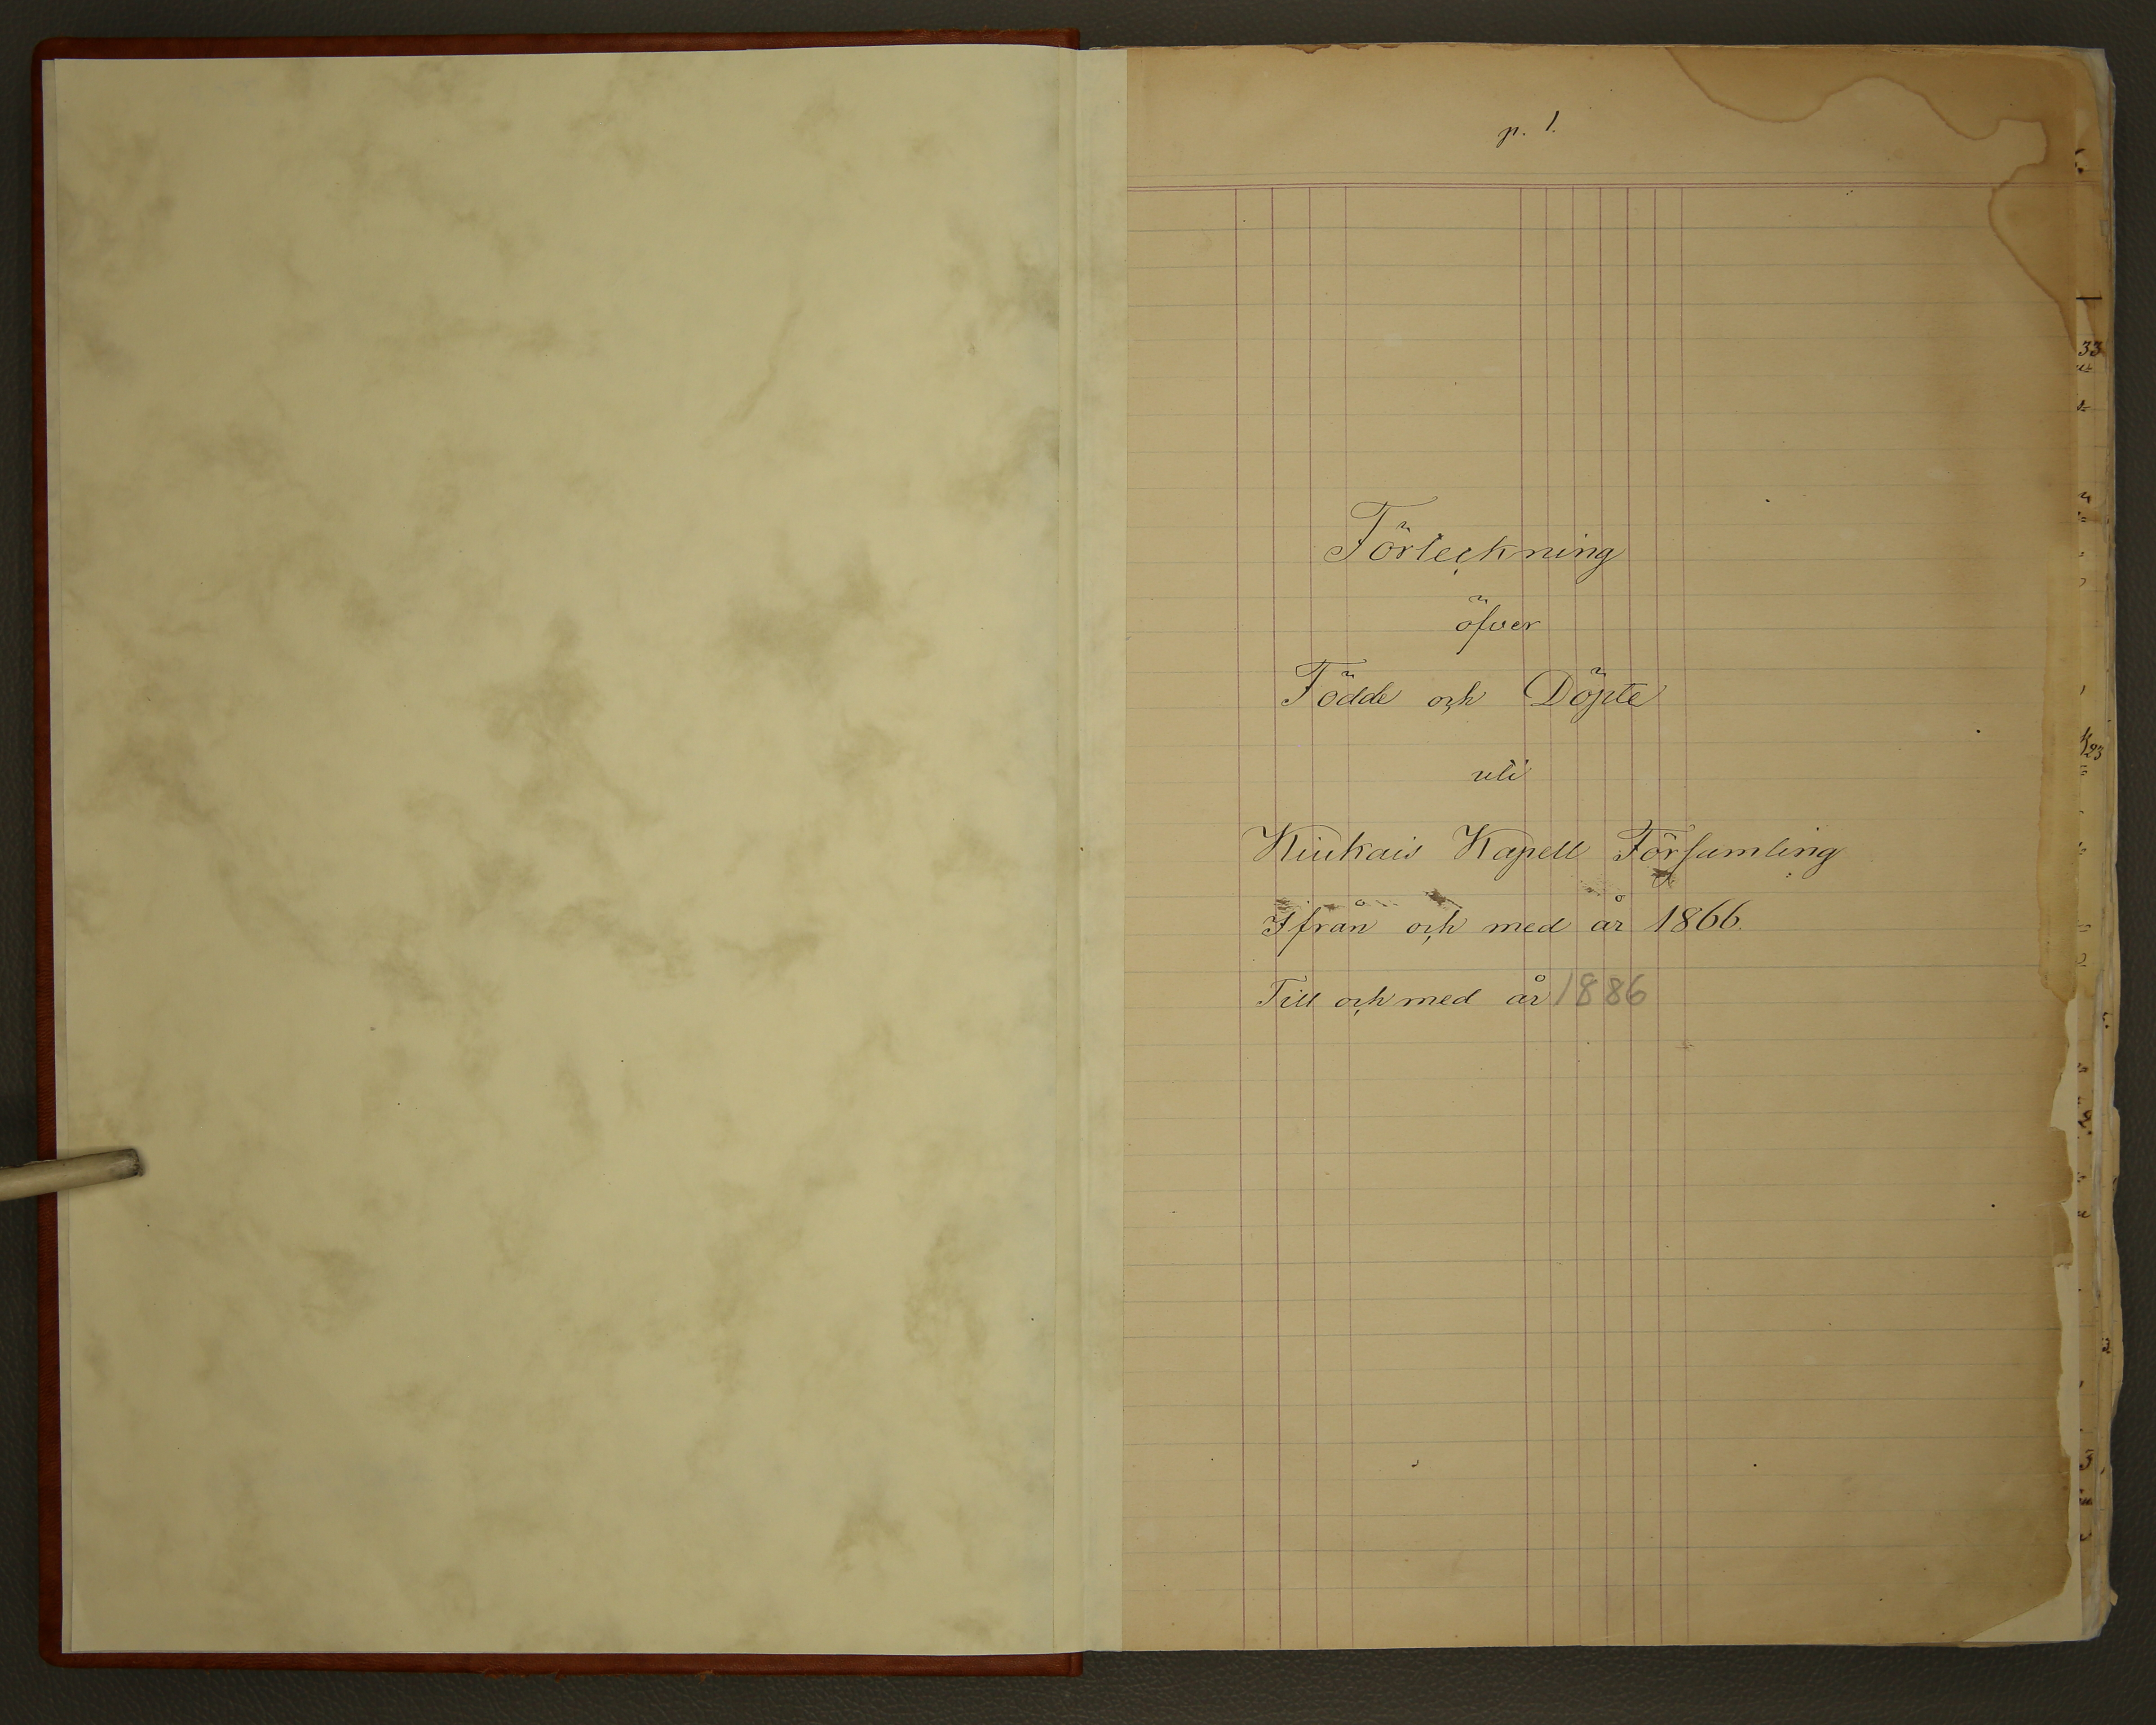 p. 1.
Förteckning
öfver
Födde och Döpte
uti
Kiukais Kapell Församling
Ifrån och med år 1866.
Till och med år 1886
33